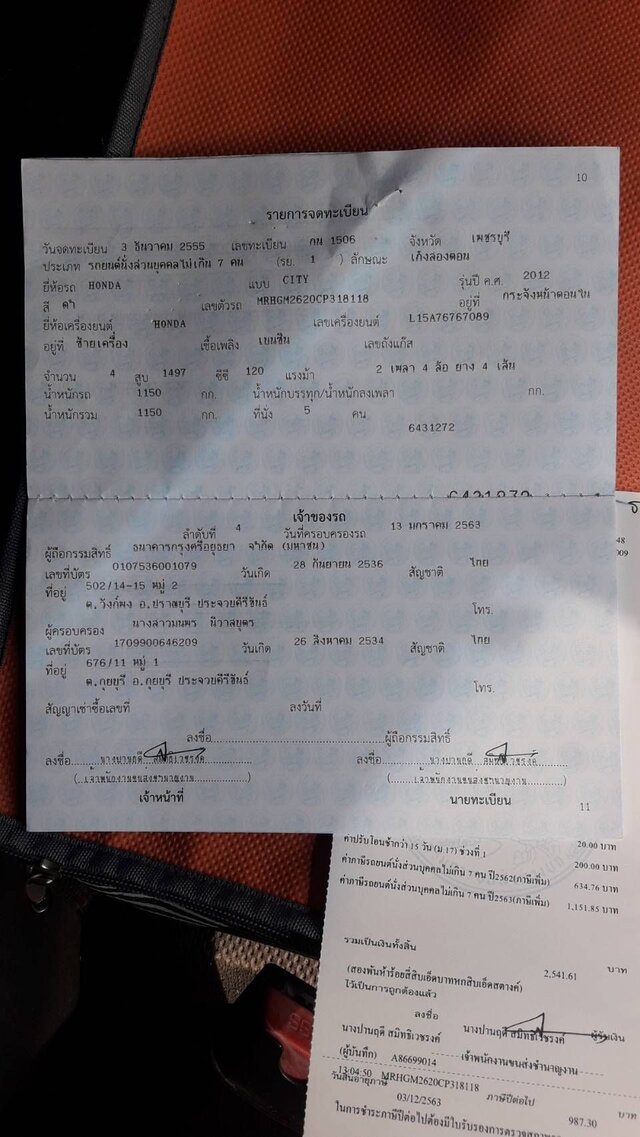 10
รายการจดทะเบียน
วันจดทะเบียน 3 ธันวาคม 2555 เลขทะเบียน กน 1506 จังหวัด เพชรบุรี
ประเภท รถยนต์นั่งส่วนบุคคลไม่เกิน 7 คน (รย. 1 ) ลักษณะ เก๋งสองตอน
ยี่ห้อรถ HONDA แบบ CITY รุ่นปี ค.ศ. 2012
สี ดำ เลขตัวรถ MRHGM2620CP318118 อยู่ที่ กระจังหน้าตอนใน
ยี่ห้อเครื่องยนต์ HONDA เลขเครื่องยนต์ L15A76767089
อยู่ที่ ซ้ายเครื่อง เชื้อเพลิง เบนซิน เลขถังแก๊ส
จำนวน 4 สูบ 1497 ซีซี 120 แรงม้า 2 เพลา 4 ล้อ ยาง 4 เส้น
น้ำหนักรถ 1150 กก. น้ำหนักบรรทุก/น้ำหนักลงเพลา กก.
น้ำหนักรวม 1150 กก. ที่นั่ง 5 คน
6431272
เจ้าของรถ
ลำดับที่ 4 วันที่ครอบครองรถ 13 มกราคม 2563
ผู้ถือกรรมสิทธิ์ ธนาคารกรุงศรีอยุธยา จำกัด (มหาชน)
เลขที่บัตร 0107536001079 วันเกิด 28 กันยายน 2536 สัญชาติ ไทย
ที่อยู่ 502/14-15 หมู่ 2
ต.วังก์พง อ.ปราณบุรี ประจวบคีรีขันธ์
โทร.
ผู้ครอบครอง นางสาวมนพร นิวาสบุตร
เลขที่บัตร 1709900646209 วันเกิด 26 สิงหาคม 2534 สัญชาติ ไทย
ที่อยู่ 676/11 หมู่ 1
ต.กุยบุรี อ.กุยบุรี ประจวบคีรีขันธ์
โทร.
สัญญาเช่าซื้อเลขที่ ลงวันที่
ลงชื่อ ผู้ถือกรรมสิทธิ์
ลงชื่อ นางปานฤดี สมิทธิเวชรงค์ ลงชื่อ นางปานฤดี สมิทธิเวชรงค์
(เจ้าพนักงานขนส่งชำนาญงาน) (เจ้าพนักงานขนส่งชำนาญงาน)
เจ้าหน้าที่ นายทะเบียน
11
48
009
ค่าปรับโอนช้ากว่า 15 วัน (ม.17) ช่วงที่ 1 20.00 บาท
200.00 บาท
ค่าภาษีรถยนต์นั่งส่วนบุคคลไม่เกิน 7 คน ปี2562(ภาษีเพิ่ม) 634.76 บาท
ค่าภาษีรถยนต์นั่งส่วนบุคคลไม่เกิน 7 คน ปี2563(ภาษีเพิ่ม) 1,151.85 บาท
รวมเป็นเงินทั้งสิ้น 2,541.61 บาท
(สองพันห้าร้อยสี่สิบเอ็ดบาทหกสิบเอ็ดสตางค์)
ไว้เป็นการถูกต้องแล้ว
ลงชื่อ
นางปานฤดี สมิทธิเวชรงค์ นางปานฤดี สมิทธิเวชรงค์ ผู้รับเงิน
(ผู้บันทึก) A86699014 เจ้าพนักงานขนส่งชำนาญงาน
13:04:50 MRHGM2620CP318118
วันสิ้นอายุภาษี 03/12/2563 ภาษีปีต่อไป 987.30 บาท
ในการชำระภาษีปีต่อไปต้องมีใบรับรองการตรวจสภาพ